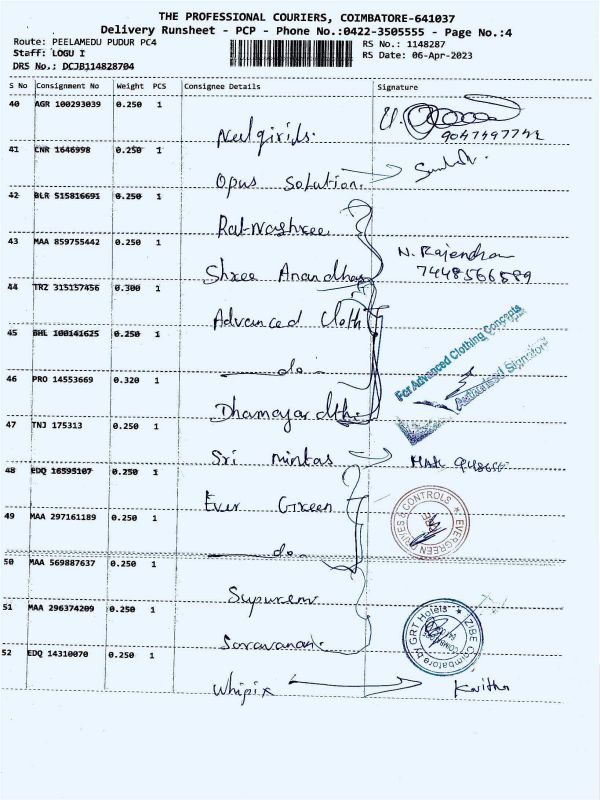 THE PROFESSIONAL COURIERS, COIMBATORE-641037
Delivery Runsheet - PCP - Phone No.:0422-3505555 - Page No.:4
Route: PEELAMEDU PUDUR PC4
RS No.: 1148287
Staff: LOGU I
RS Date: 06-Apr-2023
DRS No.: DCJB114828704
S No Consignment No Weight PCS Consignee Details Signature
40 AGR 100293039 0.250 1
Neelgirids.
9047497742
41 CNR 1646998 0.250 1
Opus Solution.
42 BLR 515816691 0.250 1
Ratnashree
43 MAA 859755442 0.250 1
N. Rajendran
Shree Anandhas
7448566589
44 TRZ 315157456 0.300 1
Advanced Cloth
For Advanced Clothing Concepts
45 BHL 100141625 0.250 1
do
Authorised Signatory
46 PRO 14553669 0.320 1
47 TNJ 175313 0.250 1
Sri
48 EDQ 16595107 0.250 1
Ever Green
EVERGREEN DRIVES & CONTROLS
CBE
49 MAA 297161189 0.250 1
do
50 MAA 569887637 0.250 1
51 MAA 296374209 0.250 1
Saravanan
ZIBE Coimbatore by GRT Hotels
52 EDQ 14310070 0.250 1
Whipix Kavitha